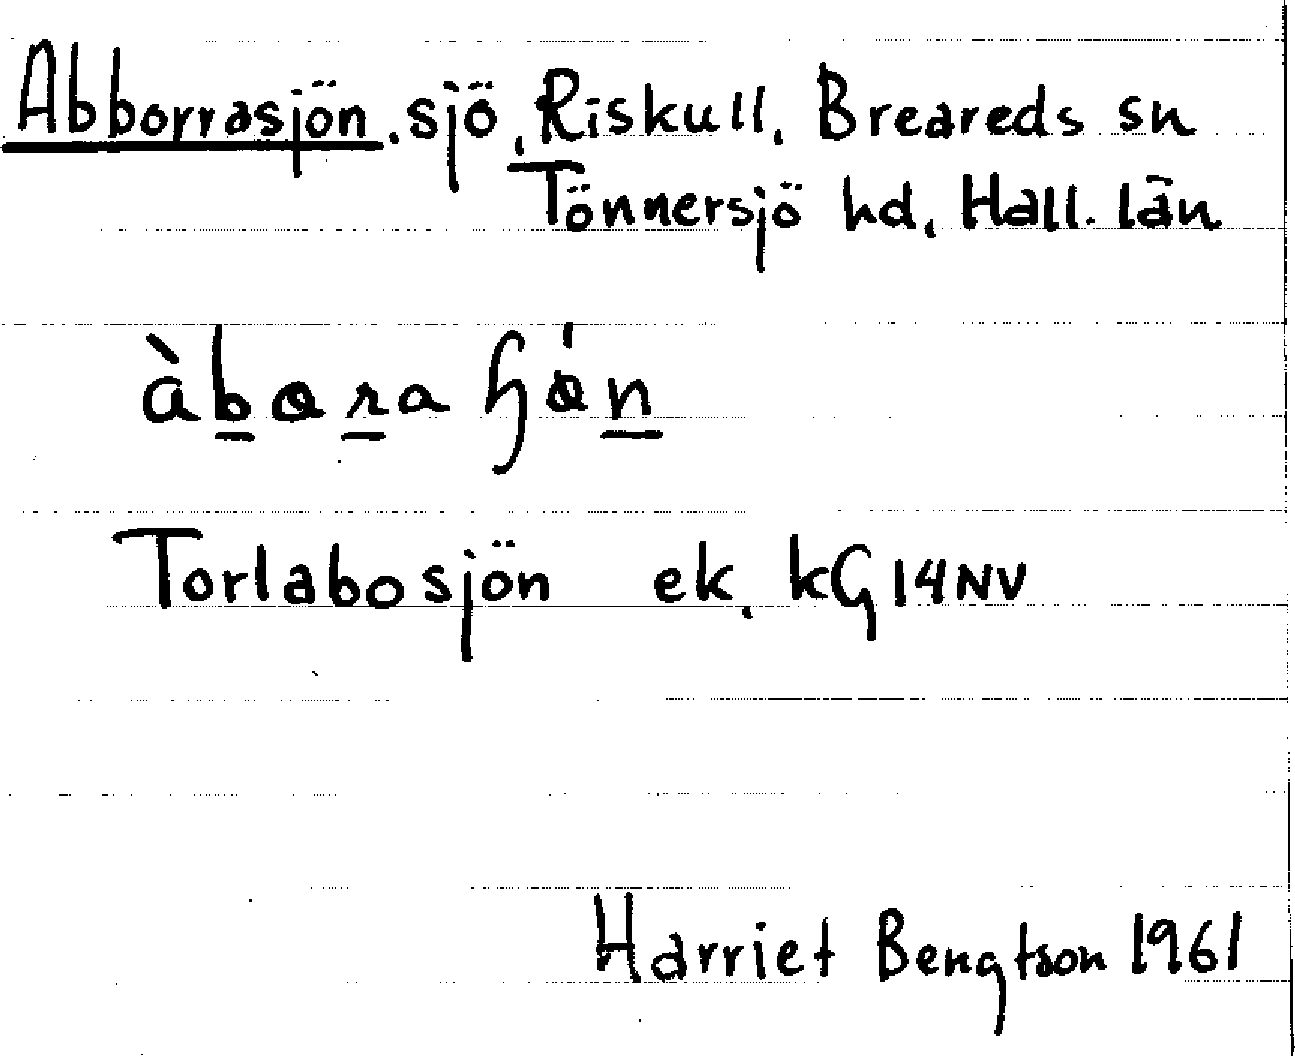 Abborrasjön. sjö, Riskull, Breareds sn
Tönnersjö hd, Hall. län
àbꞷra ɧǿn
Torlabosjön ek. kG14NV
Harriet Bengtson 1961